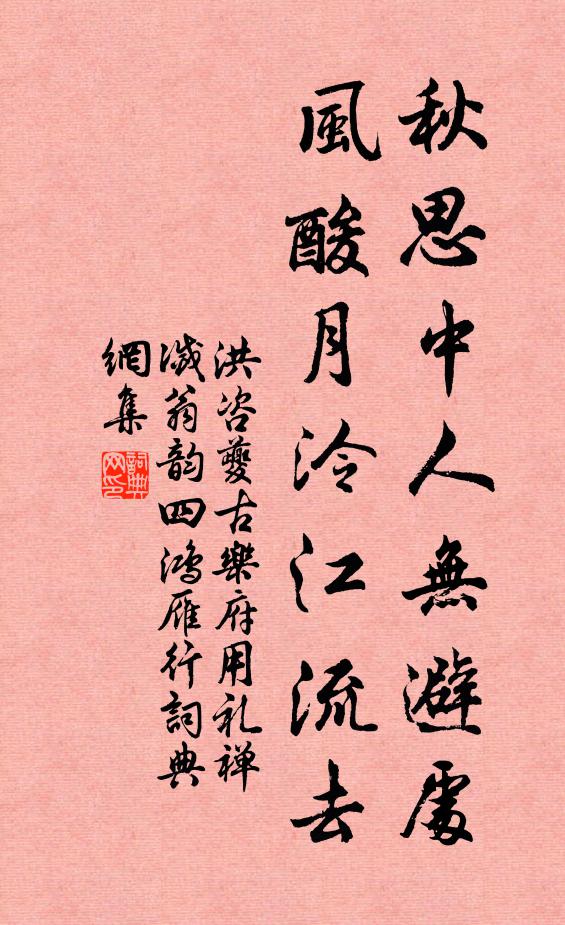 秋思中人無避處
風酸月泠江流去
洪咨夔古樂府用礼禅
滅翁韵四鴻雁行詞典
網集
詞典網印